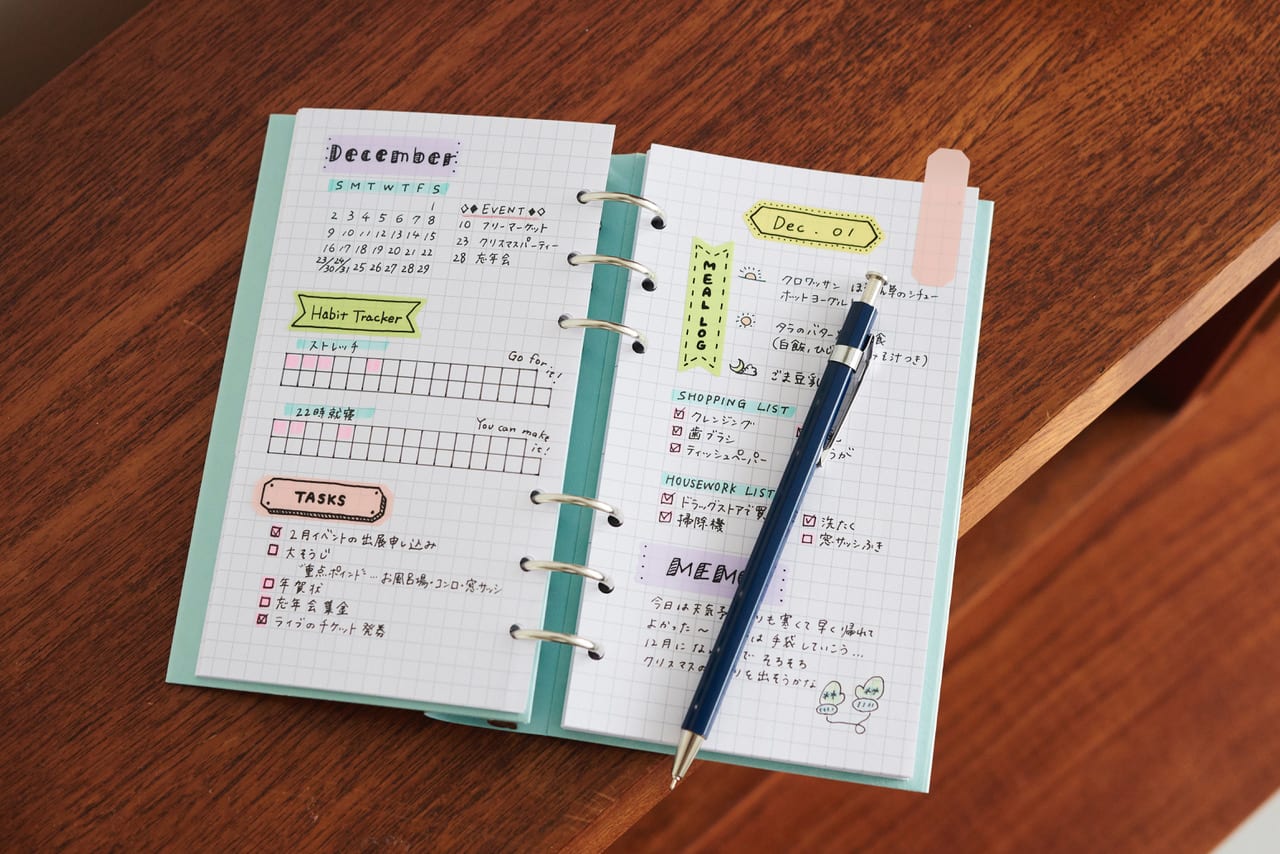 December
S M T W T F S
1
2 3 4 5 6 7 8
9 10 11 12 13 14 15
16 17 18 19 20 21 22
23/30 24/31 25 26 27 28 29
◇◆EVENT◆◇
10 フリーマーケット
23 クリスマスパーティー
28 忘年会
Habit Tracker
ストレッチ
Go for it!
22時就寝
You can make it!
TASKS
2月イベントの出展申し込み
大そうじ
"重点ポイント"…お風呂場・コンロ・窓サッシ
年賀状
忘年会集金
ライブのチケット発券
Dec. 01
MEAL LOG
クロワッサン ほ 草のシチュー
ホットヨーグル
タラのバター 食
(白飯, ひじ 汁つき)
ごま豆乳
SHOPPING LIST
クレンジング
歯ブラシ
ティッシュペーパー
うが
HOUSEWORK LIST
ドラッグストアで買
掃除機
洗たく
窓サッシふき
MEMO
今日は天気予 りも寒くて早く帰れて
よかった〜
12月に な は手袋していこう…
クリスマスの で そろそろ
りを出そうかな